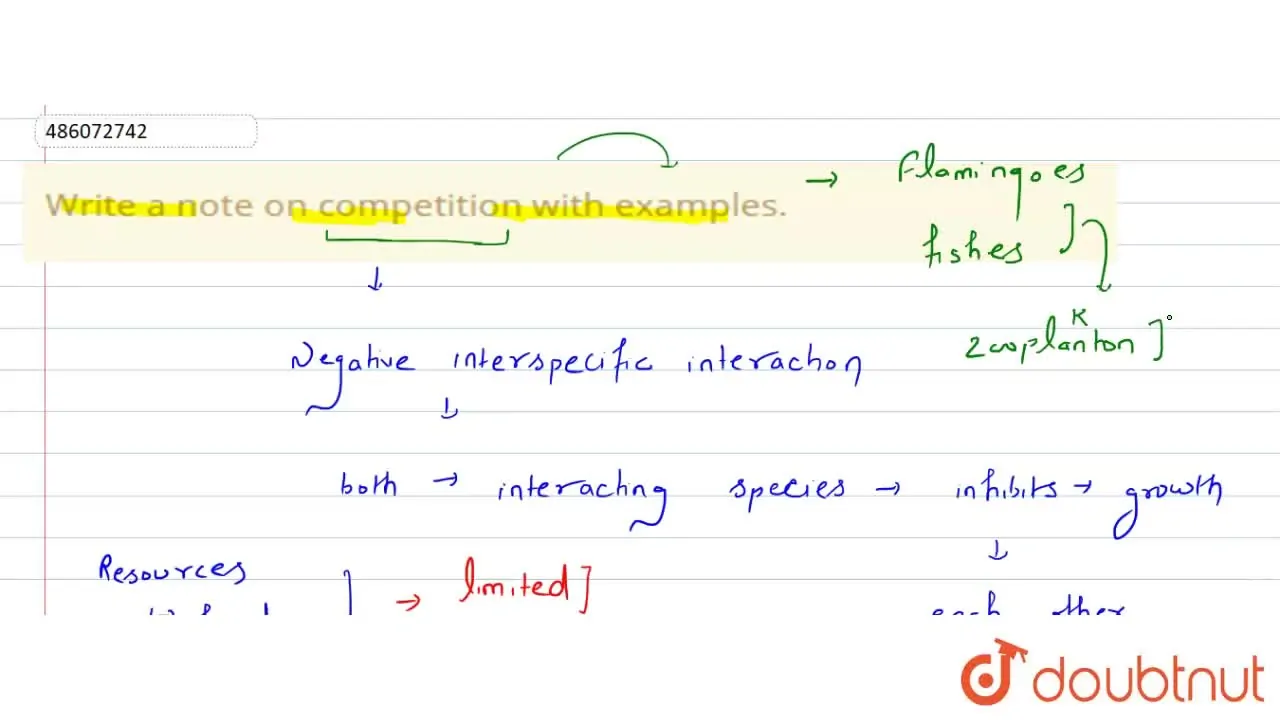 486072742
Write a note on competition with examples.
→ Flamingoes
fishes ]
zooplankton ]
↓
Negative interspecific interaction
↓
both → interacting species → inhibits → growth
↓
Resources
→ limited ]
each other
doubtnut